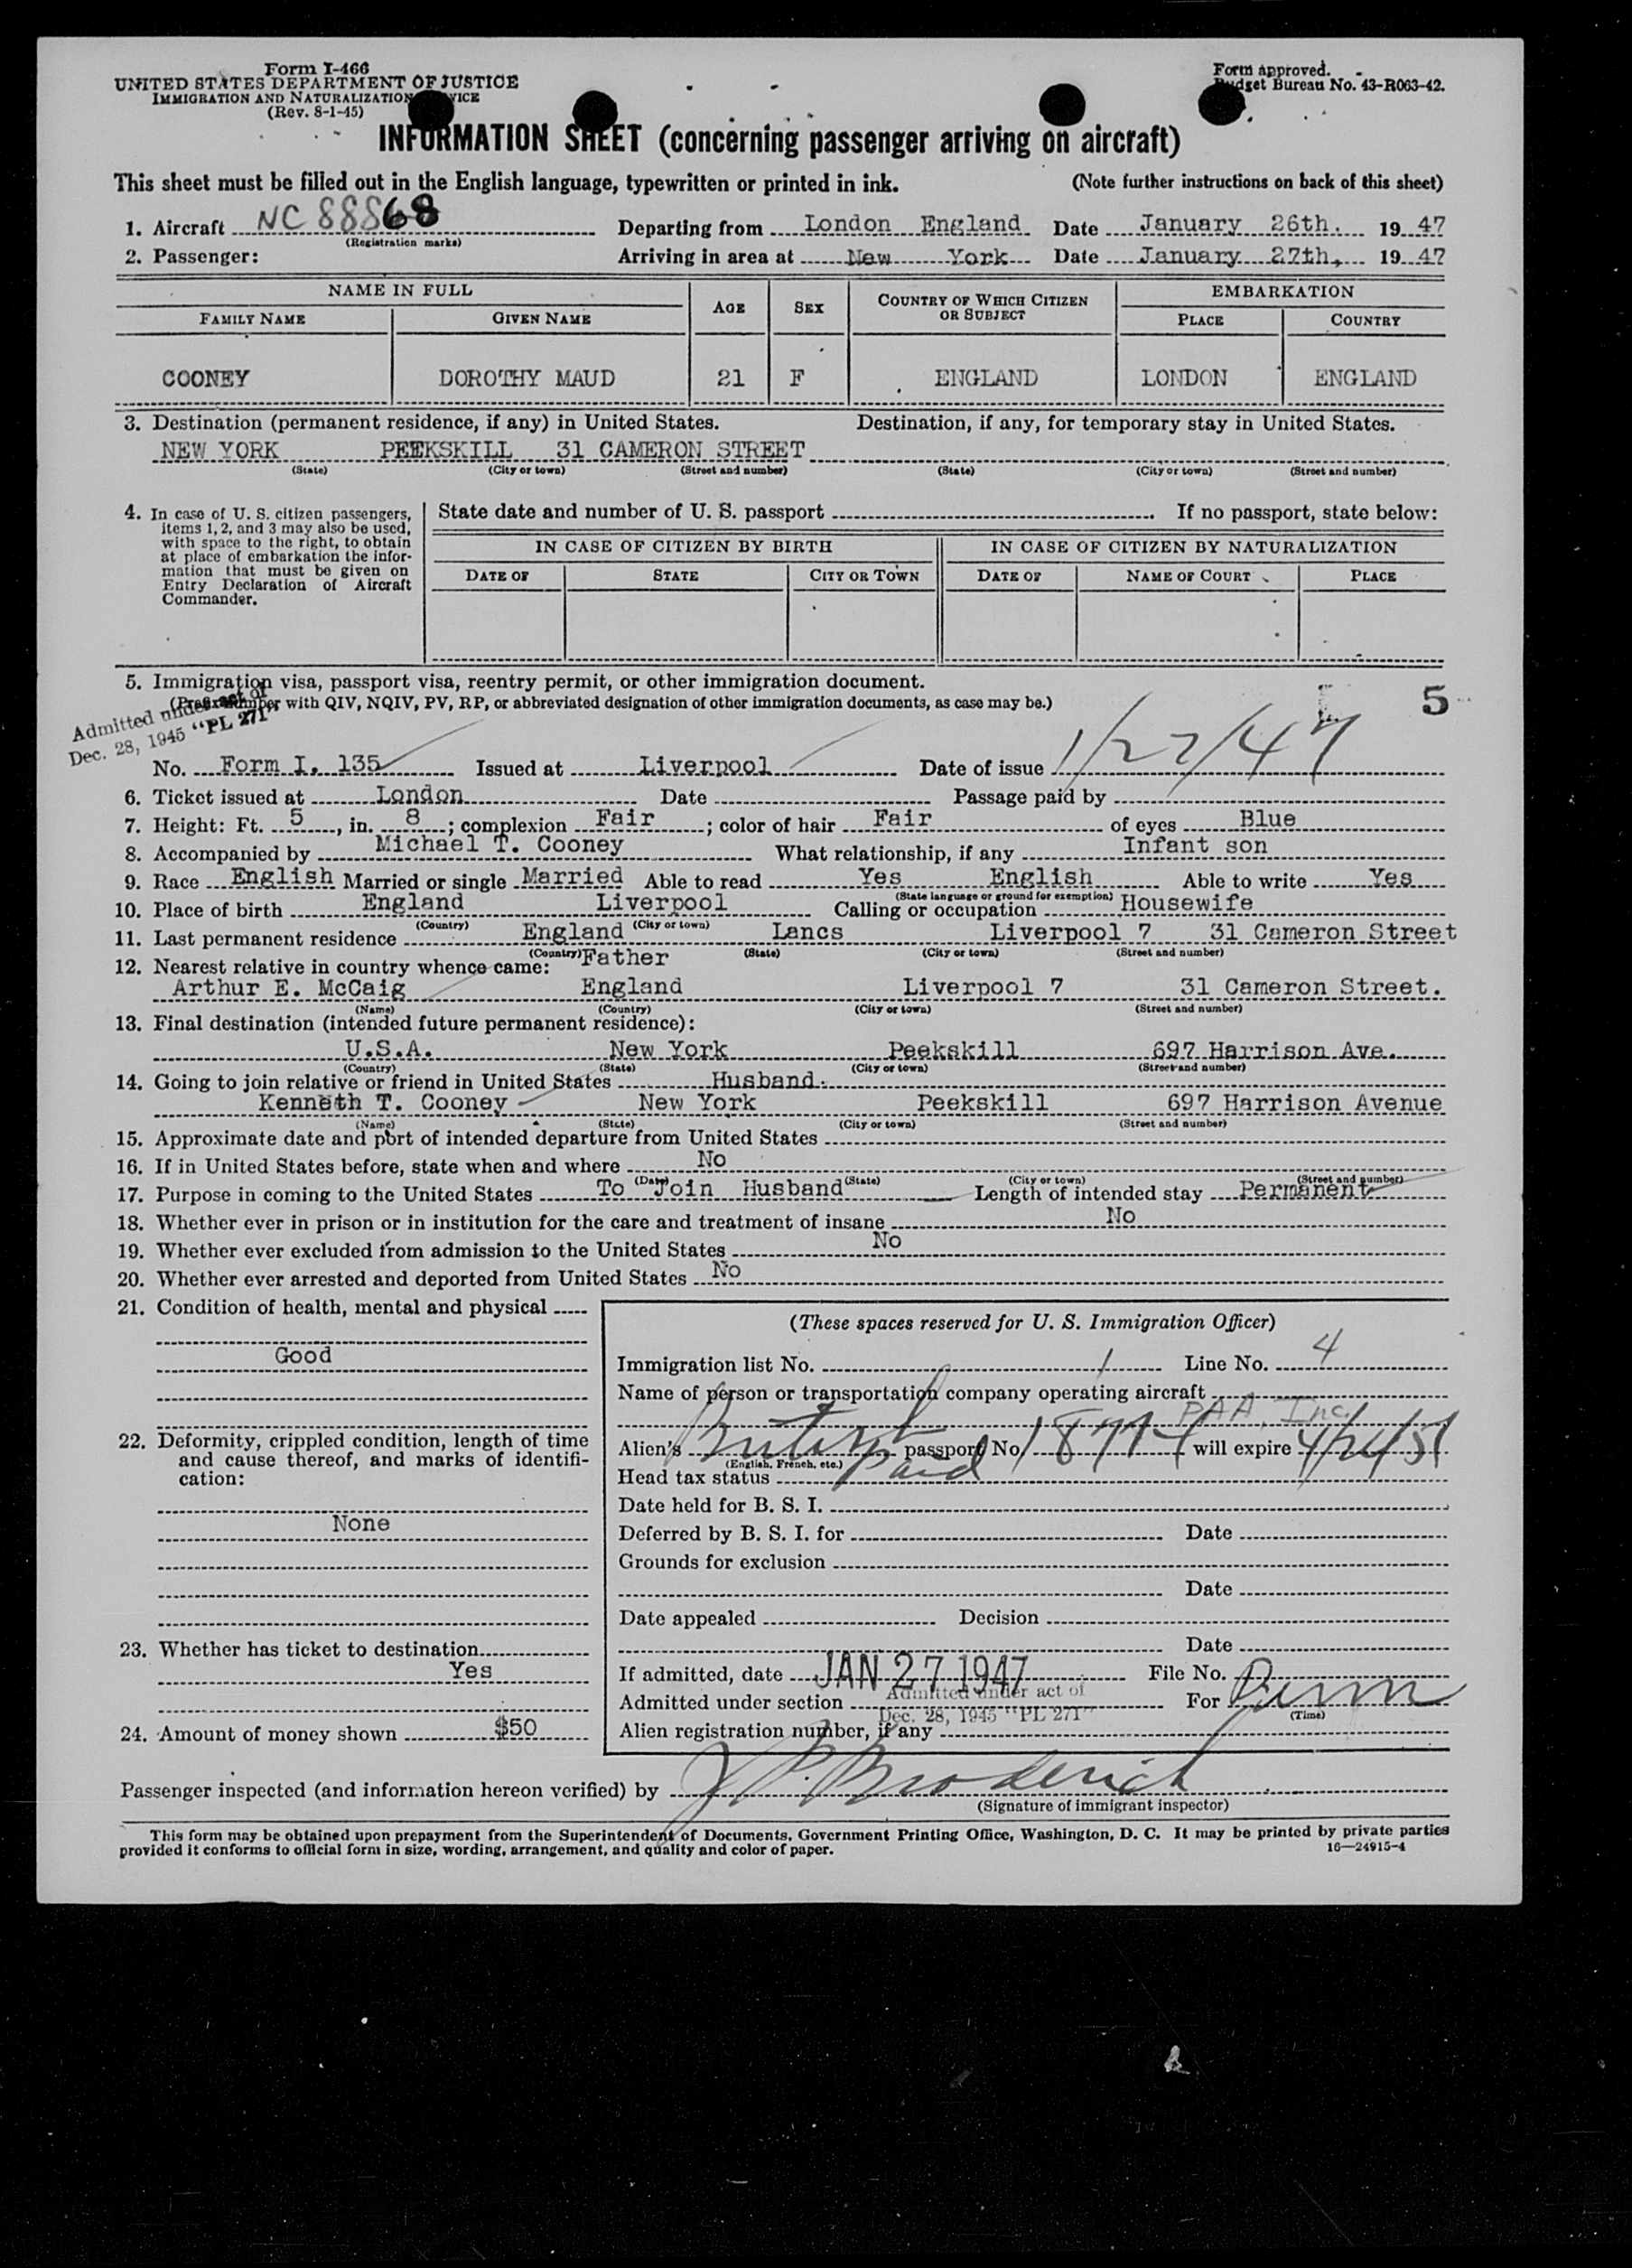 Form I-466
UNITED STATES DEPARTMENT OF JUSTICE
IMMIGRATION AND NATURALIZATION
(Rev. 8-1-45)
Form approved.
Budget Bureau No. 43-R063-42.
INFORMATION SHEET (concerning passenger arriving on aircraft)
This sheet must be filled out in the English language, typewritten or printed in ink. (Note further instructions on back of this sheet)
1. Aircraft NC 88868 Departing from London England Date January 26th. 19 47
(Registration marks)
2. Passenger: Arriving in area at New York Date January 27th, 19 47
NAME IN FULL AGE SEX COUNTRY OF WHICH CITIZEN OR SUBJECT EMBARKATION
FAMILY NAME GIVEN NAME PLACE COUNTRY
COONEY DOROTHY MAUD 21 F ENGLAND LONDON ENGLAND
3. Destination (permanent residence, if any) in United States. Destination, if any, for temporary stay in United States.
NEW YORK PEEKSKILL 31 CAMERON STREET
(State) (City or town) (Street and number) (State) (City or town) (Street and number)
4. In case of U. S. citizen passengers,
items 1, 2, and 3 may also be used,
with space to the right, to obtain
at place of embarkation the infor-
mation that must be given on
Entry Declaration of Aircraft
Commander.
State date and number of U. S. passport If no passport, state below:
IN CASE OF CITIZEN BY BIRTH IN CASE OF CITIZEN BY NATURALIZATION
DATE OF STATE CITY OR TOWN DATE OF NAME OF COURT PLACE
5. Immigration visa, passport visa, reentry permit, or other immigration document.
(Prefix number with QIV, NQIV, PV, RP, or abbreviated designation of other immigration documents, as case may be.) 5
Admitted under act of
Dec. 28, 1945 "PL 271"
No. Form I. 135 Issued at Liverpool Date of issue 1/22/47
6. Ticket issued at London Date Passage paid by
7. Height: Ft. 5, in. 8; complexion Fair; color of hair Fair of eyes Blue
8. Accompanied by Michael T. Cooney What relationship, if any Infant son
9. Race English Married or single Married Able to read Yes English Able to write Yes
(State language or ground for exemption)
10. Place of birth England Liverpool Calling or occupation Housewife
(Country) (City or town)
11. Last permanent residence England Lancs Liverpool 7 31 Cameron Street
(Country) (State) (City or town) (Street and number)
12. Nearest relative in country whence came: Father
Arthur E. McCaig England Liverpool 7 31 Cameron Street.
(Name) (Country) (City or town) (Street and number)
13. Final destination (intended future permanent residence):
U.S.A. New York Peekskill 697 Harrison Ave.
(Country) (State) (City or town) (Street and number)
14. Going to join relative or friend in United States Husband.
Kenneth T. Cooney New York Peekskill 697 Harrison Avenue
(Name) (State) (City or town) (Street and number)
15. Approximate date and port of intended departure from United States
16. If in United States before, state when and where No
(Date) (State) (City or town) (Street and number)
17. Purpose in coming to the United States To Join Husband Length of intended stay Permanent
18. Whether ever in prison or in institution for the care and treatment of insane No
19. Whether ever excluded from admission to the United States No
20. Whether ever arrested and deported from United States No
21. Condition of health, mental and physical
Good
22. Deformity, crippled condition, length of time
and cause thereof, and marks of identifi-
cation:
None
23. Whether has ticket to destination
Yes
24. Amount of money shown $50
(These spaces reserved for U. S. Immigration Officer)
Immigration list No. 1 Line No. 4
Name of person or transportation company operating aircraft
PAA, Inc.
Alien's British passport No. will expire 4/24/51
(English, French, etc.)
Head tax status Paid
Date held for B. S. I.
Deferred by B. S. I. for Date
Grounds for exclusion
Date
Date appealed Decision
Date
If admitted, date JAN 27 1947 File No.
Admitted under section Admitted under act of For Perm
Dec. 28, 1945 "PL 271" (Time)
Alien registration number, if any
Passenger inspected (and information hereon verified) by J P. Broderick
(Signature of immigrant inspector)
This form may be obtained upon prepayment from the Superintendent of Documents, Government Printing Office, Washington, D. C. It may be printed by private parties
provided it conforms to official form in size, wording, arrangement, and quality and color of paper. 16—24915-4